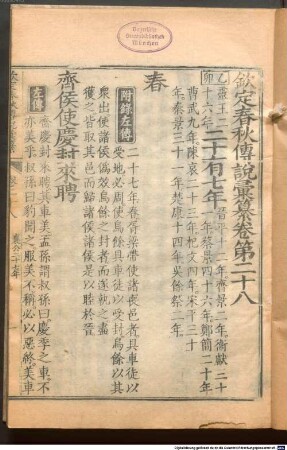 Bayerische
Staatsbibliothek
München
欽定春秋傳說彙纂卷第二十八
乙卯
靈王二十六年
二十有七年
晉平十二年齊景二年衛獻二十
一年蔡景四十六年鄭簡二十年
曹武九年陳哀二十三年杞文四年宋平三十
年秦景三十一年楚康十四年吳餘祭二年
春
附錄左傳
二十七年春胥梁帶使諸喪邑者具車徒以
受地必周使烏餘具車徒以受封烏餘以其
衆出使諸侯偽效烏餘之封者而遂執之盡
獲之皆取其邑而歸諸侯諸侯是以睦於晉
齊侯使慶封來聘
左傳
齊慶封來聘其車美孟孫謂叔孫曰慶季之車不
亦美乎叔孫曰豹聞之服美不稱必以惡終美車